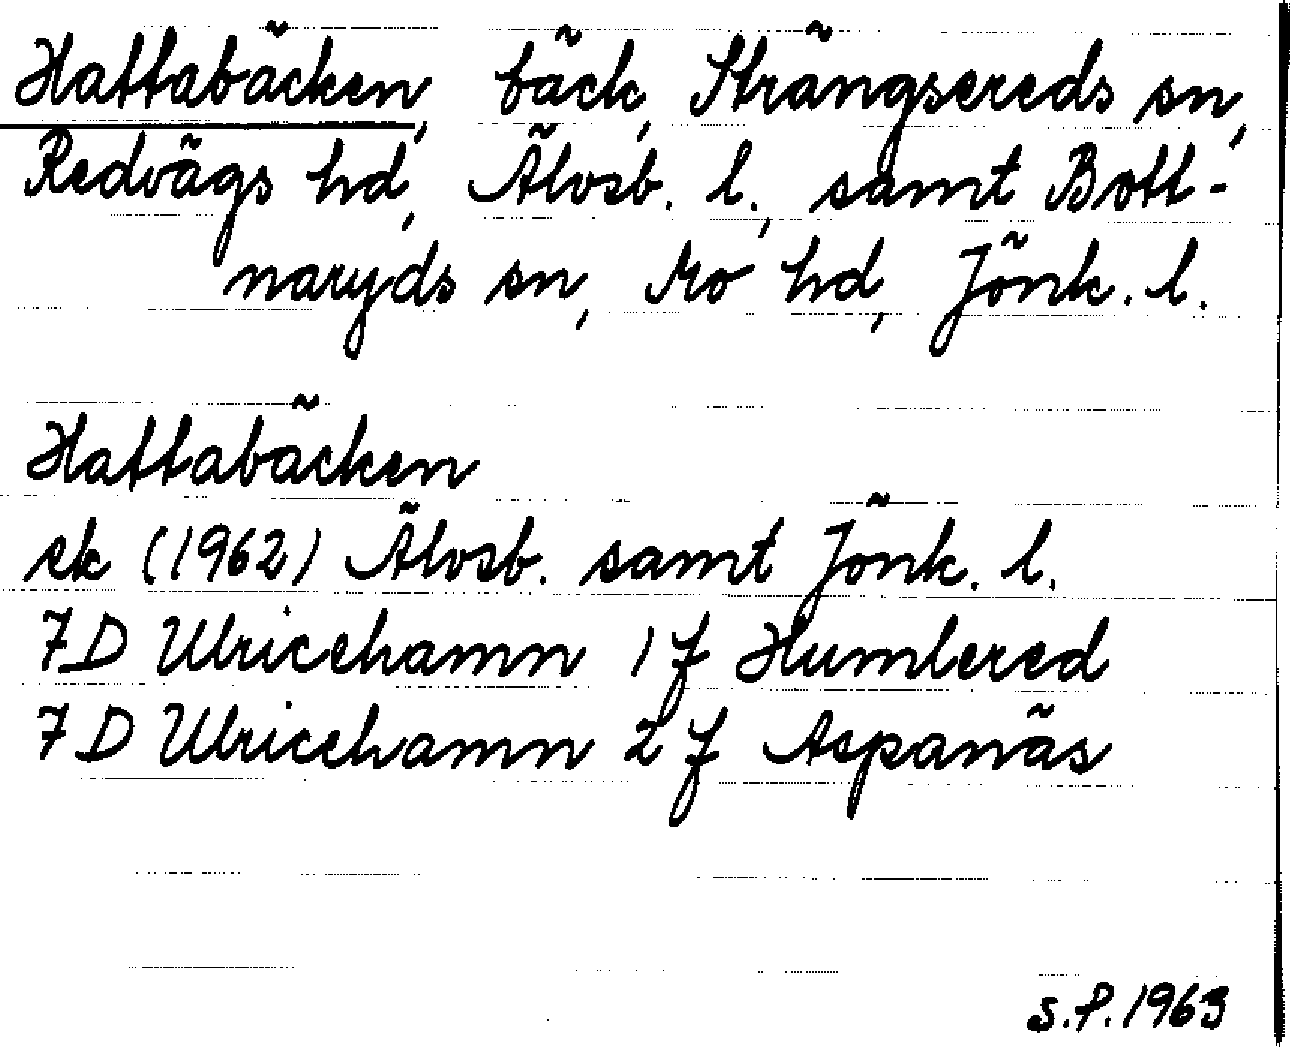 Hattabäcken, bäck, Strängsereds sn,
Redvägs hd, Älvsb. l., samt Bott-
naryds sn, Mo hd, Jönk. l.
Hattabäcken
ek (1962) Älvsb. samt Jönk. l.
7D Ulricehamn 1f Humlered
7D Ulricehamn 2f Aspanäs
S.P. 1963